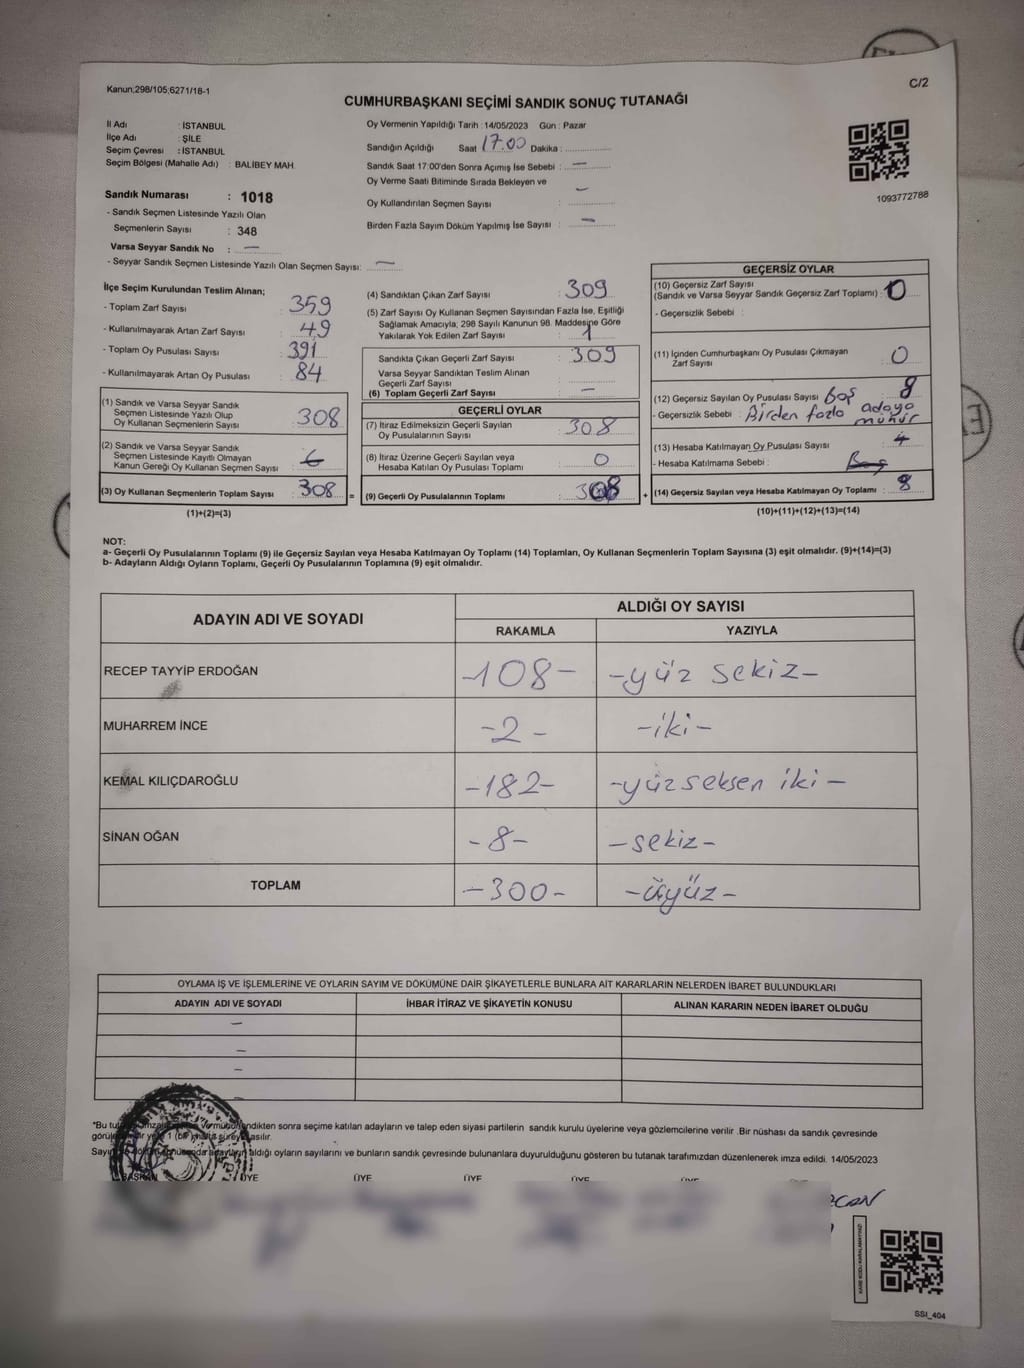 Kanun;298/105;6271/18-1
C/2
CUMHURBAŞKANI SEÇİMİ SANDIK SONUÇ TUTANAĞI
İl Adı : İSTANBUL
İlçe Adı : ŞİLE
Seçim Çevresi : İSTANBUL
Seçim Bölgesi (Mahalle Adı) : BALİBEY MAH.
Sandık Numarası : 1018
- Sandık Seçmen Listesinde Yazılı Olan
Seçmenlerin Sayısı : 348
Varsa Seyyar Sandık No : —
- Seyyar Sandık Seçmen Listesinde Yazılı Olan Seçmen Sayısı: —
Oy Vermenin Yapıldığı Tarih : 14/05/2023 Gün : Pazar
Sandığın Açıldığı Saat 17.00 Dakika :
Sandık Saat 17:00'den Sonra Açımış İse Sebebi : —
Oy Verme Saati Bitiminde Sırada Bekleyen ve —
Oy Kullandırılan Seçmen Sayısı :
Birden Fazla Sayım Döküm Yapılmış İse Sayısı : —
1093772788
İlçe Seçim Kurulundan Teslim Alınan;
- Toplam Zarf Sayısı : 359
- Kullanılmayarak Artan Zarf Sayısı : 49
- Toplam Oy Pusulası Sayısı : 391
- Kullanılmayarak Artan Oy Pusulası : 84
(1) Sandık ve Varsa Seyyar Sandık
Seçmen Listesinde Yazılı Olup
Oy Kullanan Seçmenlerin Sayısı : 308
(2) Sandık ve Varsa Seyyar Sandık
Seçmen Listesinde Kayıtlı Olmayan
Kanun Gereği Oy Kullanan Seçmen Sayısı :
(3) Oy Kullanan Seçmenlerin Toplam Sayısı : 308 =
(1)+(2)=(3)
(4) Sandıktan Çıkan Zarf Sayısı : 309
(5) Zarf Sayısı Oy Kullanan Seçmen Sayısından Fazla İse, Eşitliği
Sağlamak Amacıyla; 298 Sayılı Kanunun 98. Maddesine Göre
Yakılarak Yok Edilen Zarf Sayısı : 1
Sandıkta Çıkan Geçerli Zarf Sayısı : 309
Varsa Seyyar Sandıktan Teslim Alınan
Geçerli Zarf Sayısı :
(6) Toplam Geçerli Zarf Sayısı : —
GEÇERLİ OYLAR
(7) İtiraz Edilmeksizin Geçerli Sayılan
Oy Pusulalarının Sayısı : 308
(8) İtiraz Üzerine Geçerli Sayılan veya
Hesaba Katılan Oy Pusulası Toplamı : 0
(9) Geçerli Oy Pusulalarının Toplamı : 308 +
GEÇERSİZ OYLAR
(10) Geçersiz Zarf Sayısı
(Sandık ve Varsa Seyyar Sandık Geçersiz Zarf Toplamı) : 0
- Geçersizlik Sebebi :
(11) İçinden Cumhurbaşkanı Oy Pusulası Çıkmayan
Zarf Sayısı : 0
(12) Geçersiz Sayılan Oy Pusulası Sayısı Boş 8
- Geçersizlik Sebebi : Birden fazla adaya
mühür
(13) Hesaba Katılmayan Oy Pusulası Sayısı :
- Hesaba Katılmama Sebebi : Boş
(14) Geçersiz Sayılan veya Hesaba Katılmayan Oy Toplamı : 8
(10)+(11)+(12)+(13)=(14)
NOT:
a- Geçerli Oy Pusulalarının Toplamı (9) ile Geçersiz Sayılan veya Hesaba Katılmayan Oy Toplamı (14) Toplamları, Oy Kullanan Seçmenlerin Toplam Sayısına (3) eşit olmalıdır. (9)+(14)=(3)
b- Adayların Aldığı Oyların Toplamı, Geçerli Oy Pusulalarının Toplamına (9) eşit olmalıdır.
ADAYIN ADI VE SOYADI
ALDIĞI OY SAYISI
RAKAMLA YAZIYLA
RECEP TAYYİP ERDOĞAN -108- -yüz sekiz-
MUHARREM İNCE -2- -iki-
KEMAL KILIÇDAROĞLU -182- -yüzseksen iki-
SİNAN OĞAN -8- -sekiz-
TOPLAM -300- -üçyüz-
OYLAMA İŞ VE İŞLEMLERİNE VE OYLARIN SAYIM VE DÖKÜMÜNE DAİR ŞİKAYETLERLE BUNLARA AİT KARARLARIN NELERDEN İBARET BULUNDUKLARI
ADAYIN ADI VE SOYADI İHBAR İTİRAZ VE ŞİKAYETİN KONUSU ALINAN KARARIN NEDEN İBARET OLDUĞU
—
—
—
—
*Bu ve mühürlendikten sonra seçime katılan adayların ve talep eden siyasi partilerin sandık kurulu üyelerine veya gözlemcilerine verilir .Bir nüshası da sandık çevresinde
1 (bir) hafta süreyle asılır.
aldığı oyların sayılarını ve bunların sandık çevresinde bulunanlara duyurulduğunu gösteren bu tutanak tarafımızdan düzenlenerek imza edildi. 14/05/2023
BAŞKAN ÜYE ÜYE ÜYE ÜYE
KARE KODU KARALAMAYINIZ!
SSI_404